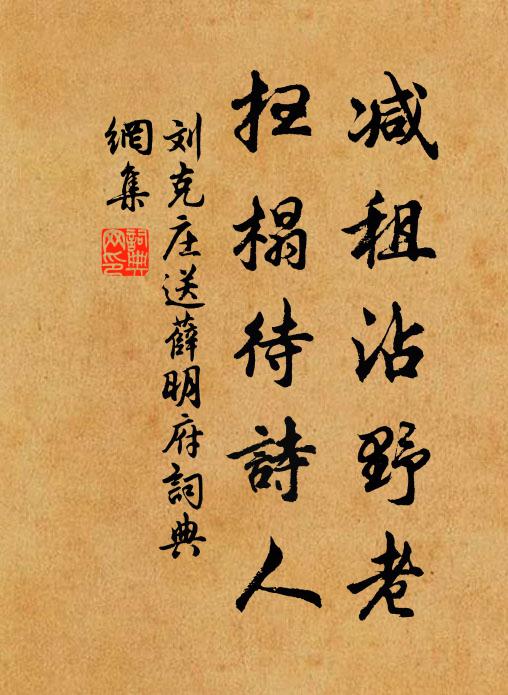 减租沾野老
扫榻待詩人
刘克庄送薛明府詞典
網集
詞典
网印